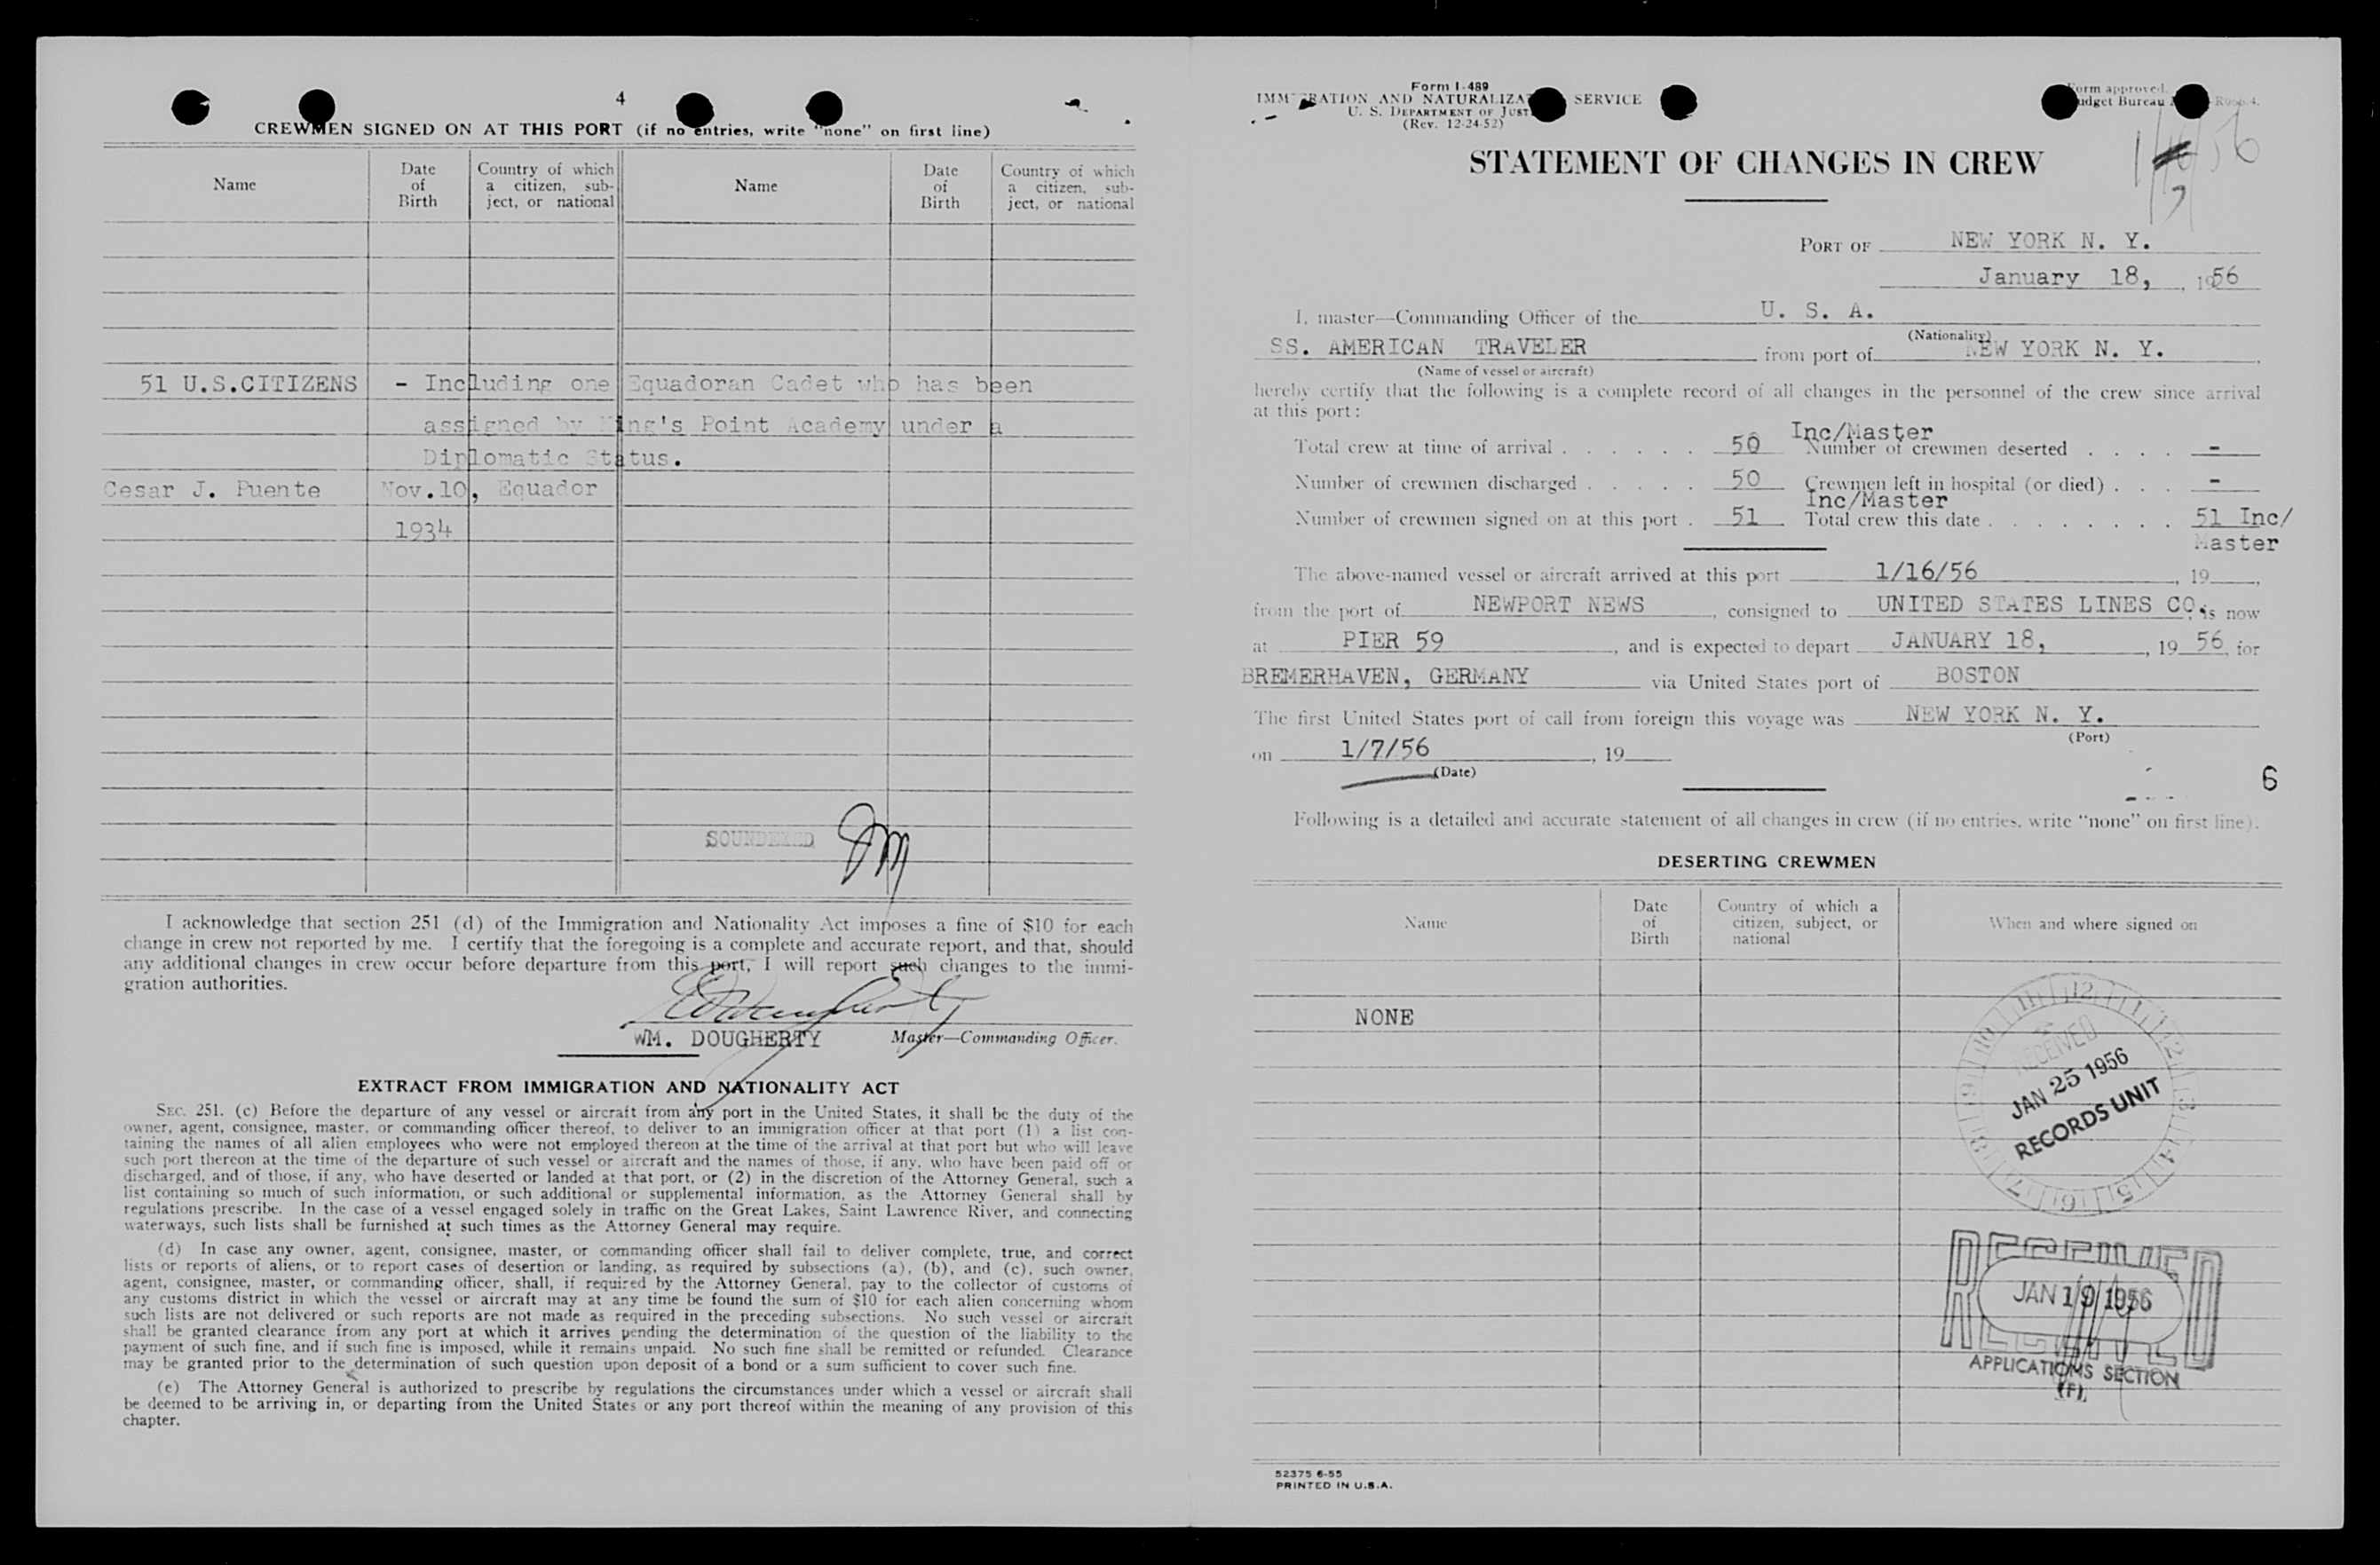 4
CREWMEN SIGNED ON AT THIS PORT (if no entries, write "none" on first line)
Name
Date of Birth
Country of which a citizen, sub-ject, or national
Name
Date of Birth
Country of which a citizen, sub-ject, or national
51 U.S.CITIZENS - Including one Equadoran Cadet who has been
assigned by King's Point Academy under a
Diplomatic Status.
Cesar J. Puente Nov.10, Equador
1934
I acknowledge that section 251 (d) of the Immigration and Nationality Act imposes a fine of $10 for each
change in crew not reported by me. I certify that the foregoing is a complete and accurate report, and that, should
any additional changes in crew occur before departure from this port, I will report such changes to the immi-
gration authorities.
WM. DOUGHERTY Master—Commanding Officer.
EXTRACT FROM IMMIGRATION AND NATIONALITY ACT
SEC. 251. (c) Before the departure of any vessel or aircraft from any port in the United States, it shall be the duty of the
owner, agent, consignee, master, or commanding officer thereof, to deliver to an immigration officer at that port (1) a list con-
taining the names of all alien employees who were not employed thereon at the time of the arrival at that port but who will leave
such port thereon at the time of the departure of such vessel or aircraft and the names of those, if any, who have been paid off or
discharged, and of those, if any, who have deserted or landed at that port, or (2) in the discretion of the Attorney General, such a
list containing so much of such information, or such additional or supplemental information, as the Attorney General shall by
regulations prescribe. In the case of a vessel engaged solely in traffic on the Great Lakes, Saint Lawrence River, and connecting
waterways, such lists shall be furnished at such times as the Attorney General may require.
(d) In case any owner, agent, consignee, master, or commanding officer shall fail to deliver complete, true, and correct
lists or reports of aliens, or to report cases of desertion or landing, as required by subsections (a), (b), and (c), such owner,
agent, consignee, master, or commanding officer, shall, if required by the Attorney General, pay to the collector of customs of
any customs district in which the vessel or aircraft may at any time be found the sum of $10 for each alien concerning whom
such lists are not delivered or such reports are not made as required in the preceding subsections. No such vessel or aircraft
shall be granted clearance from any port at which it arrives pending the determination of the question of the liability to the
payment of such fine, and if such fine is imposed, while it remains unpaid. No such fine shall be remitted or refunded. Clearance
may be granted prior to the determination of such question upon deposit of a bond or a sum sufficient to cover such fine.
(e) The Attorney General is authorized to prescribe by regulations the circumstances under which a vessel or aircraft shall
be deemed to be arriving in, or departing from the United States or any port thereof within the meaning of any provision of this
chapter.
Form I-489
IMMIGRATION AND NATURALIZATION SERVICE
U. S. DEPARTMENT OF JUSTICE
(Rev. 12-24-52)
Form approved.
Budget Bureau
STATEMENT OF CHANGES IN CREW
PORT OF NEW YORK N. Y.
January 18, 1956
I, master—Commanding Officer of the U. S. A.
(Nationality)
SS. AMERICAN TRAVELER from port of NEW YORK N. Y.
(Name of vessel or aircraft)
hereby certify that the following is a complete record of all changes in the personnel of the crew since arrival
at this port:
Inc/Master
Total crew at time of arrival . . . . . . 50 Number of crewmen deserted . . . . -
Number of crewmen discharged . . . . . 50 Crewmen left in hospital (or died) . . . -
Inc/Master
Number of crewmen signed on at this port . 51 Total crew this date . . . . . . . . 51 Inc/
Master
The above-named vessel or aircraft arrived at this port 1/16/56, 19,
from the port of NEWPORT NEWS, consigned to UNITED STATES LINES CO., is now
at PIER 59, and is expected to depart JANUARY 18, 19 56, for
BREMERHAVEN, GERMANY via United States port of BOSTON
The first United States port of call from foreign this voyage was NEW YORK N. Y.
(Port)
on 1/7/56, 19
(Date)
6
Following is a detailed and accurate statement of all changes in crew (if no entries, write "none" on first line).
DESERTING CREWMEN
Name
Date of Birth
Country of which a citizen, subject, or national
When and where signed on
NONE
RECEIVED
JAN 25 1956
RECORDS UNIT
RECEIVED
JAN 19 1956
APPLICATIONS SECTION
(F)
52375 6-55
PRINTED IN U.S.A.